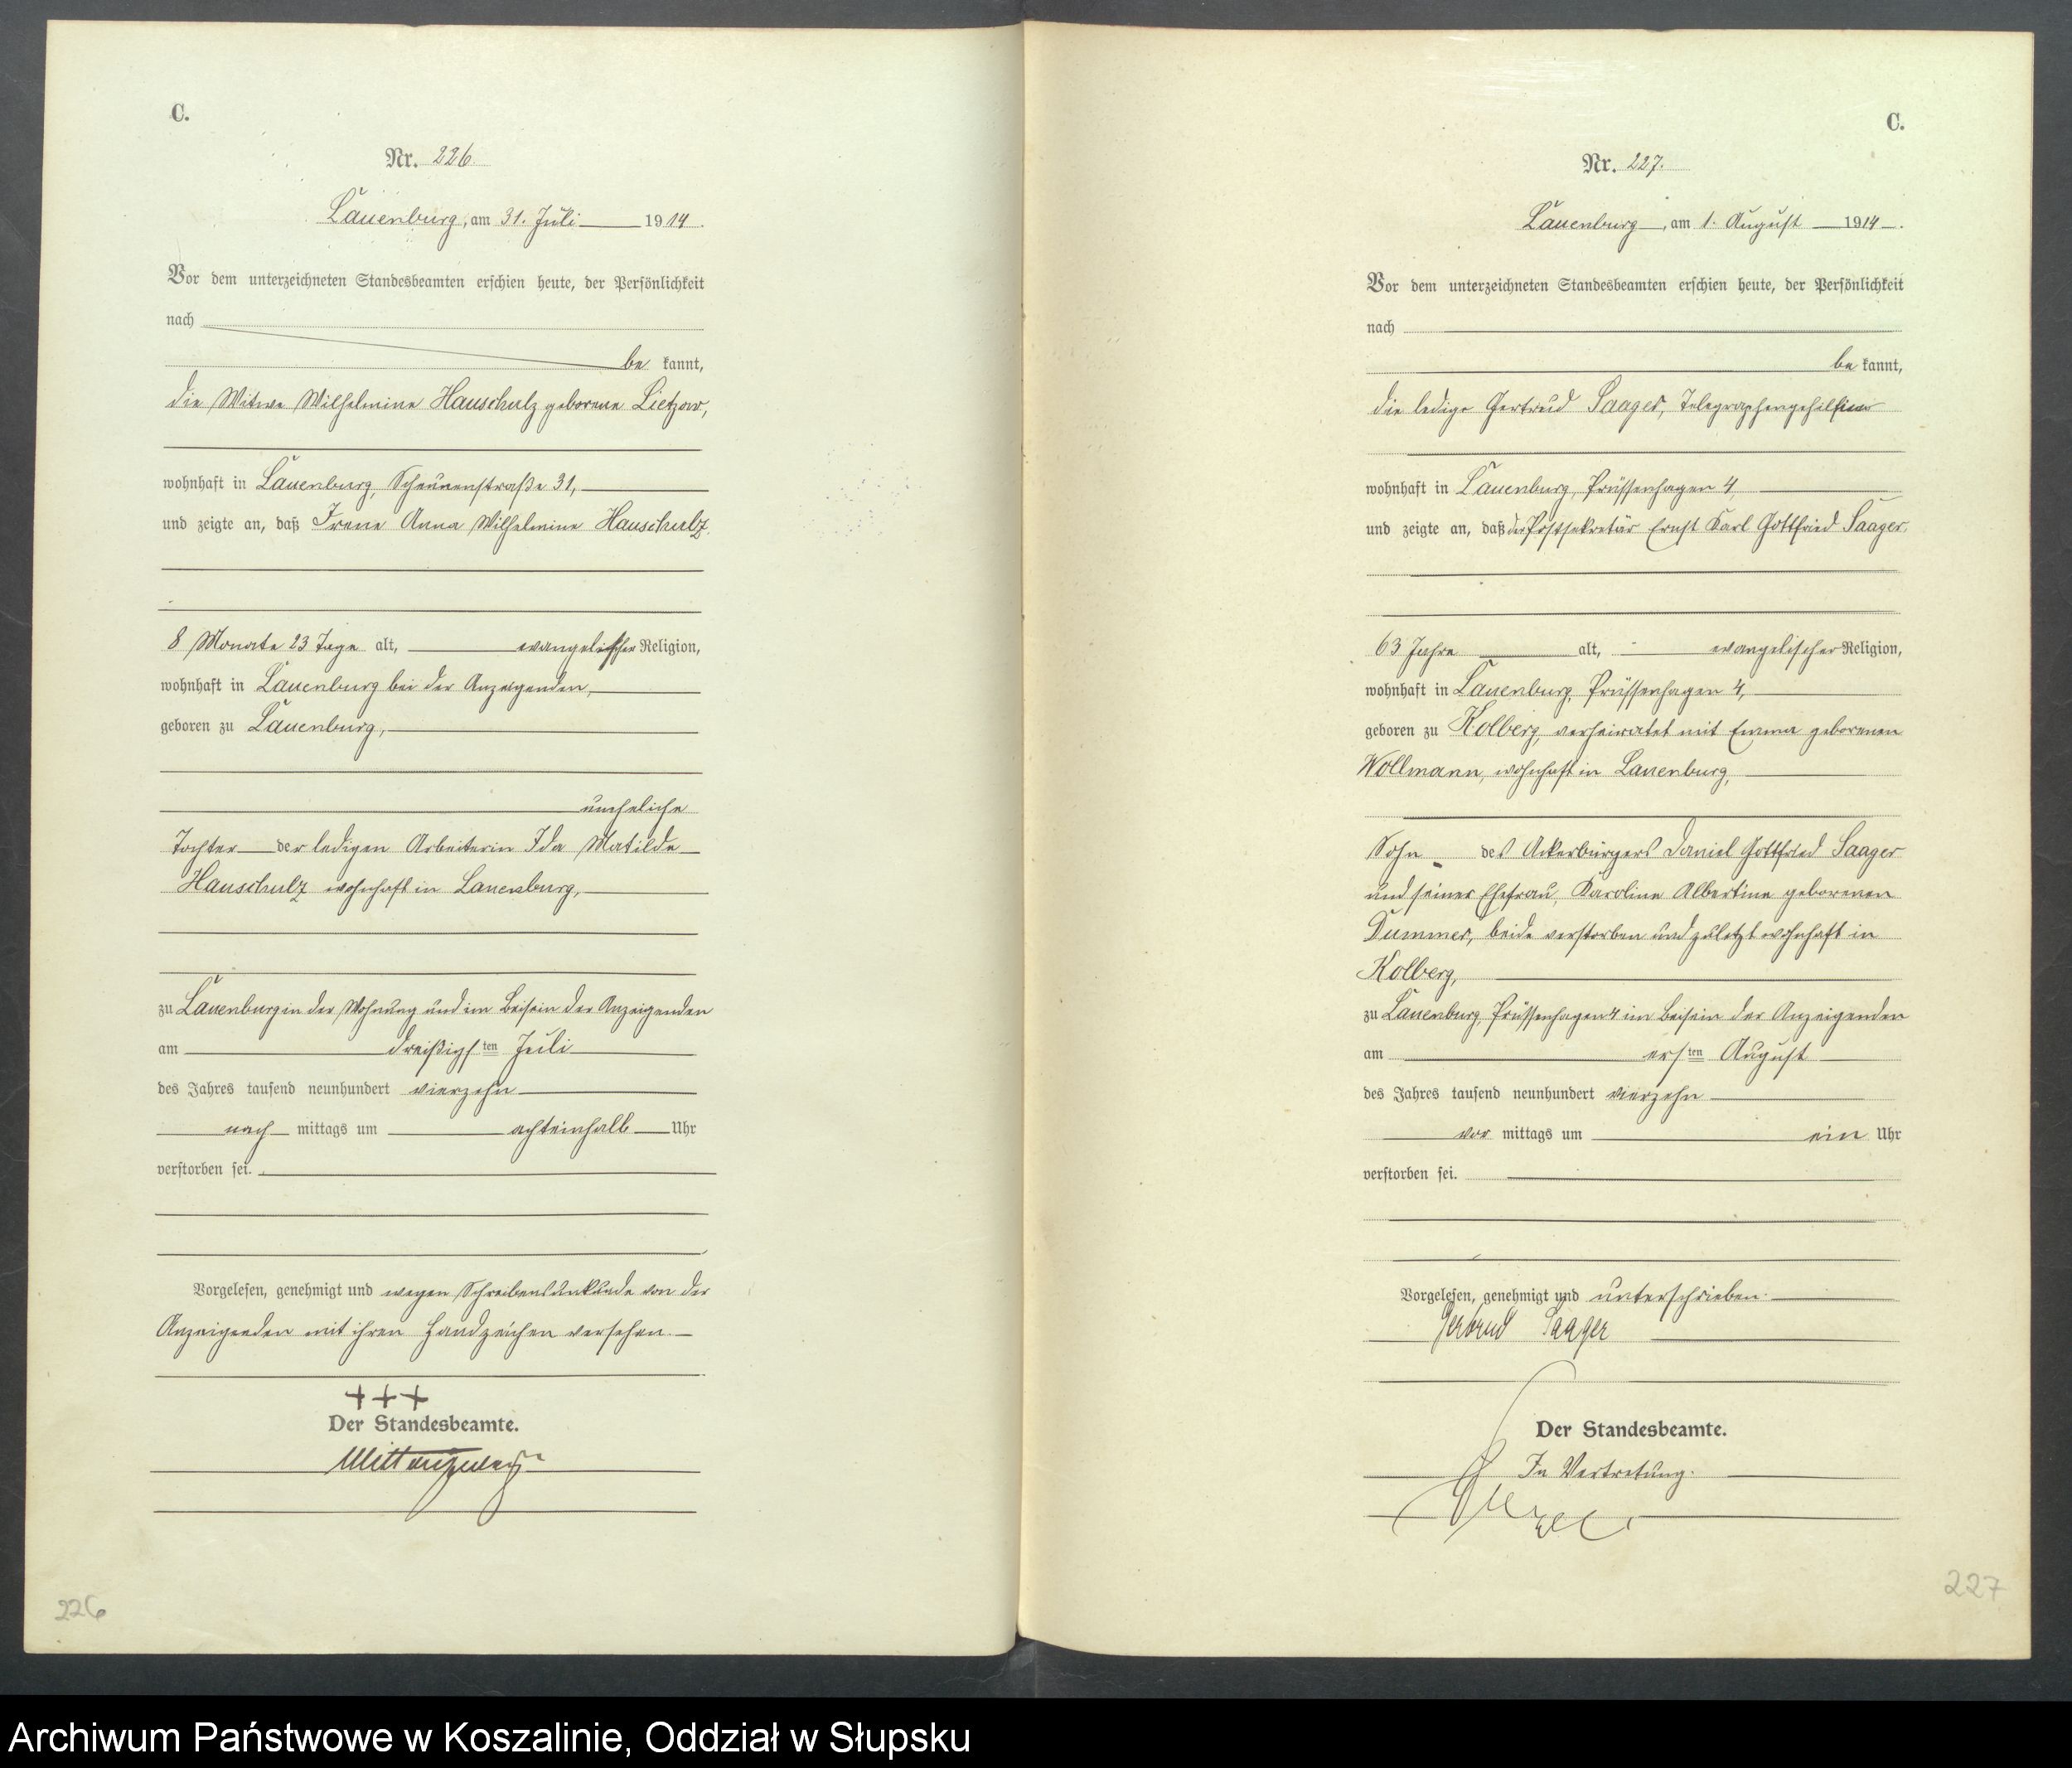 C.
Nr. 226.
Lauenburg, am 31. Juli 1914.
Vor dem unterzeichneten Standesbeamten erschien heute, der Persönlichkeit
nach
be kannt,
die Witwe Wilhelmine Hauschulz geborene Lietzow,
wohnhaft in Lauenburg, Scheunenstraße 31,
und zeigte an, daß Irene Anna Wilhelmine Hauschulz,
8 Monate 23 Tage alt, evangelischer Religion,
wohnhaft in Lauenburg bei der Anzeigenden,
geboren zu Lauenburg,
uneheliche
Tochter der ledigen Arbeiterin Ida Matilde
Hauschulz wohnhaft in Lauenburg,
zu Lauenburg in der Wohnung und im Beisein der Anzeigenden
am dreißigsten Juli
des Jahres tausend neunhundert vierzehn
nach mittags um achteinhalb Uhr
verstorben sei.
Vorgelesen, genehmigt und wegen Schreibensunkunde von der
Anzeigenden mit ihren Handzeichen versehen.
+++
Der Standesbeamte.
226
C.
Nr. 227.
Lauenburg, am 1. August 1914.
Vor dem unterzeichneten Standesbeamten erschien heute, der Persönlichkeit
nach
be kannt,
die ledige Gertrud Saager, Telegraphengehilfin
wohnhaft in Lauenburg, Prüssenhagen 4,
und zeigte an, daß der Postsekretär Ernst Karl Gottfried Saager,
63 Jahre alt, evangelischer Religion,
wohnhaft in Lauenburg, Prüssenhagen 4,
geboren zu Kolberg, verheiratet mit Emma geborenen
Wollmann, wohnhaft in Lauenburg,
Sohn des Ackerbürgers Daniel Gottfried Saager
und seiner Ehefrau, Karoline Albertine geborenen
Dummer, beide verstorben und zuletzt wohnhaft in
Kolberg,
zu Lauenburg, Prüssenhagen 4 im Beisein der Anzeigenden
am ersten August
des Jahres tausend neunhundert vierzehn
vor mittags um ein Uhr
verstorben sei.
Vorgelesen, genehmigt und unterschrieben.
Gertrud Saager
Der Standesbeamte.
In Vertretung.
227
Archiwum Państwowe w Koszalinie, Oddział w Słupsku